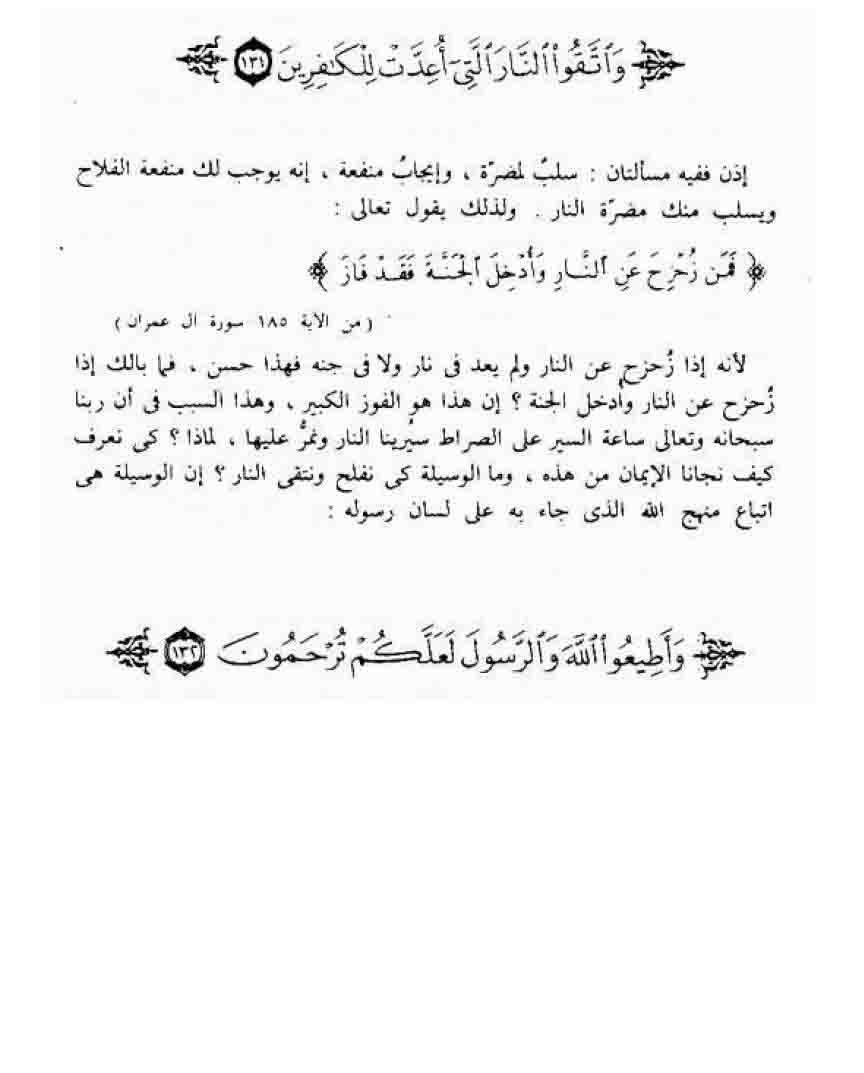 وَٱتَّقُوا۟ ٱلنَّارَ ٱلَّتِىٓ أُعِدَّتْ لِلْكَـٰفِرِينَ ١٣١
إذن ففيه مسألتان : سلبٌ لمضرّة ، وإيجابُ منفعة ، إنه يوجب لك منفعة الفلاح
ويسلب منك مضرّة النار . ولذلك يقول تعالى :
﴿ فَمَن زُحْزِحَ عَنِ ٱلنَّارِ وَأُدْخِلَ ٱلْجَنَّةَ فَقَدْ فَازَ ﴾
( من الآية ١٨٥ سورة آل عمران )
لأنه إذا زُحزح عن النار ولم يعد فى نار ولا فى جنه فهذا حسن ، فما بالك إذا
زُحزح عن النار وأُدخل الجنة ؟ إن هذا هو الفوز الكبير ، وهذا السبب فى أن ربنا
سبحانه وتعالى ساعة السير على الصراط سيُرينا النار ونمرُّ عليها ، لماذا ؟ كى نعرف
كيف نجانا الإيمان من هذه ، وما الوسيلة كى نفلح ونتقى النار ؟ إن الوسيلة هى
اتباع منهج الله الذى جاء به على لسان رسوله :
وَأَطِيعُوا۟ ٱللَّهَ وَٱلرَّسُولَ لَعَلَّكُمْ تُرْحَمُونَ ١٣٢